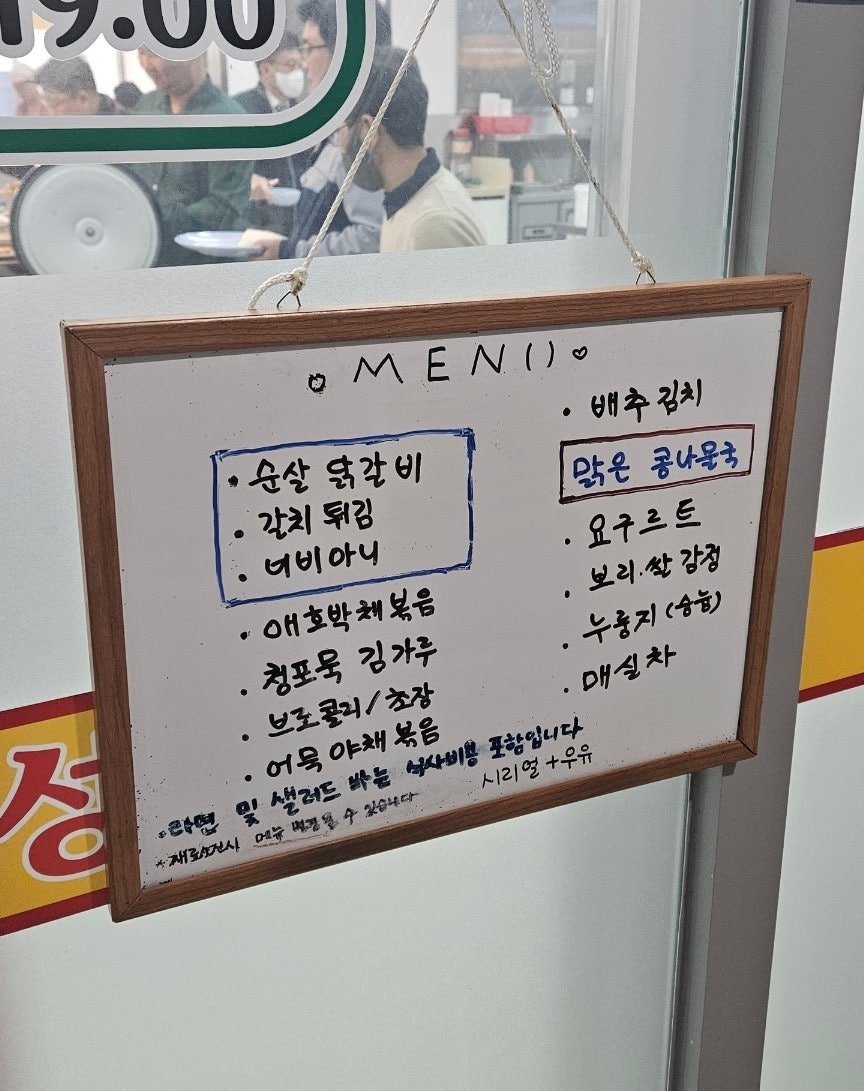 19:00
MENU
· 순살 닭갈비
· 갈치 튀김
· 너비아니
· 애호박채볶음
· 청포묵 김가루
· 브로콜리/초장
· 어묵야채볶음
· 배추김치
맑은 콩나물국
· 요구르트
· 보리.쌀 강정
· 누룽지(숭늉)
· 매실차
·라면 및 샐러드 바는 식사비용 포함입니다
시리얼+우유
*재료소진시 메뉴 변경될 수 있습니다
성